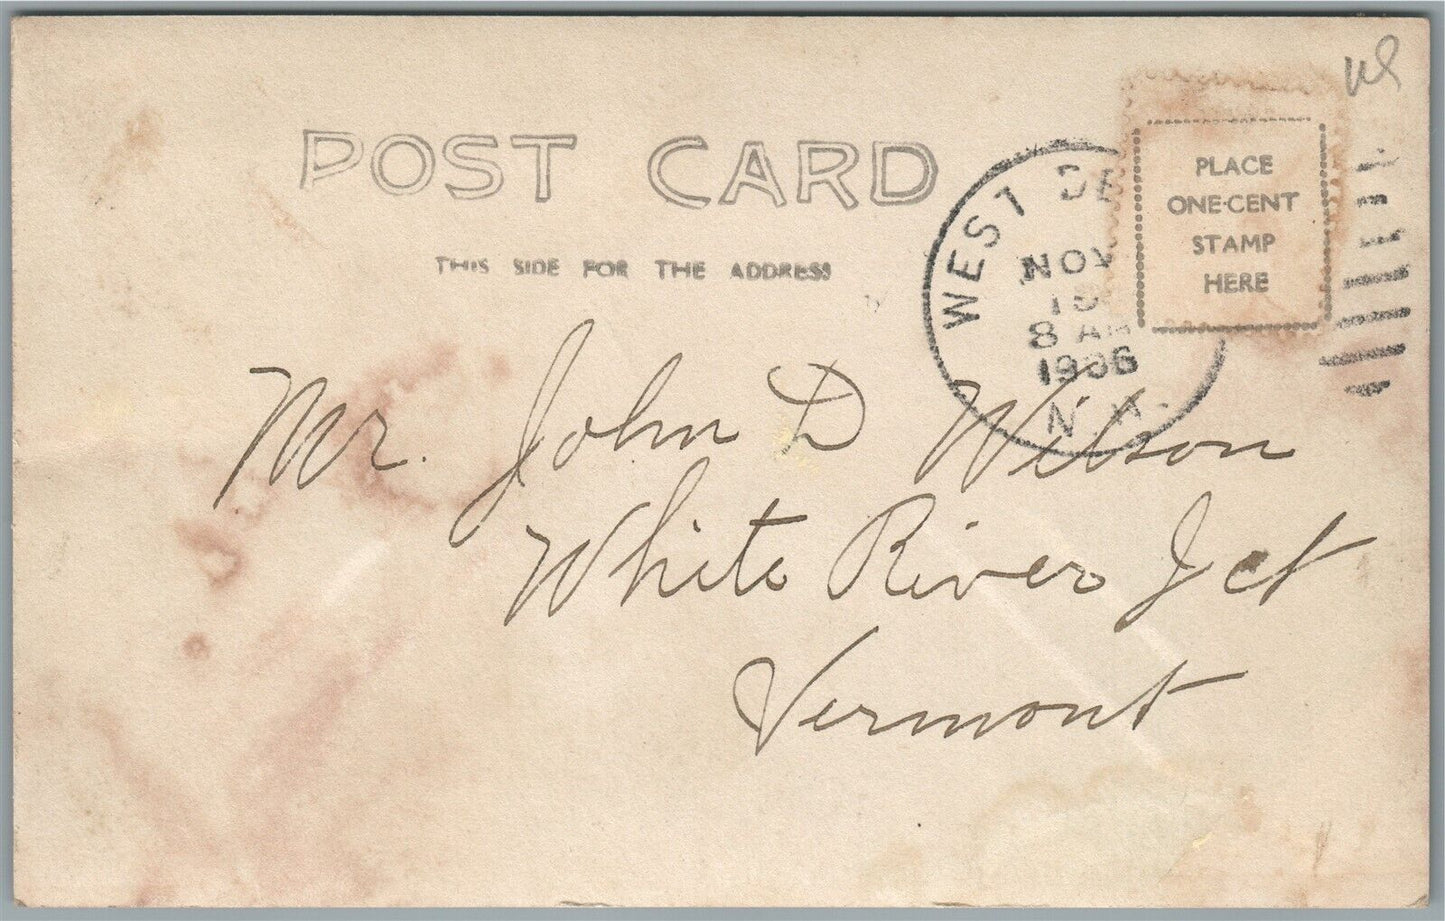 POST CARD
THIS SIDE FOR THE ADDRESS
PLACE
ONE-CENT
STAMP
HERE
WEST DE
NOV
15
8 AM
1906
N.H.
Mr. John D Wilson
White River Jct
Vermont